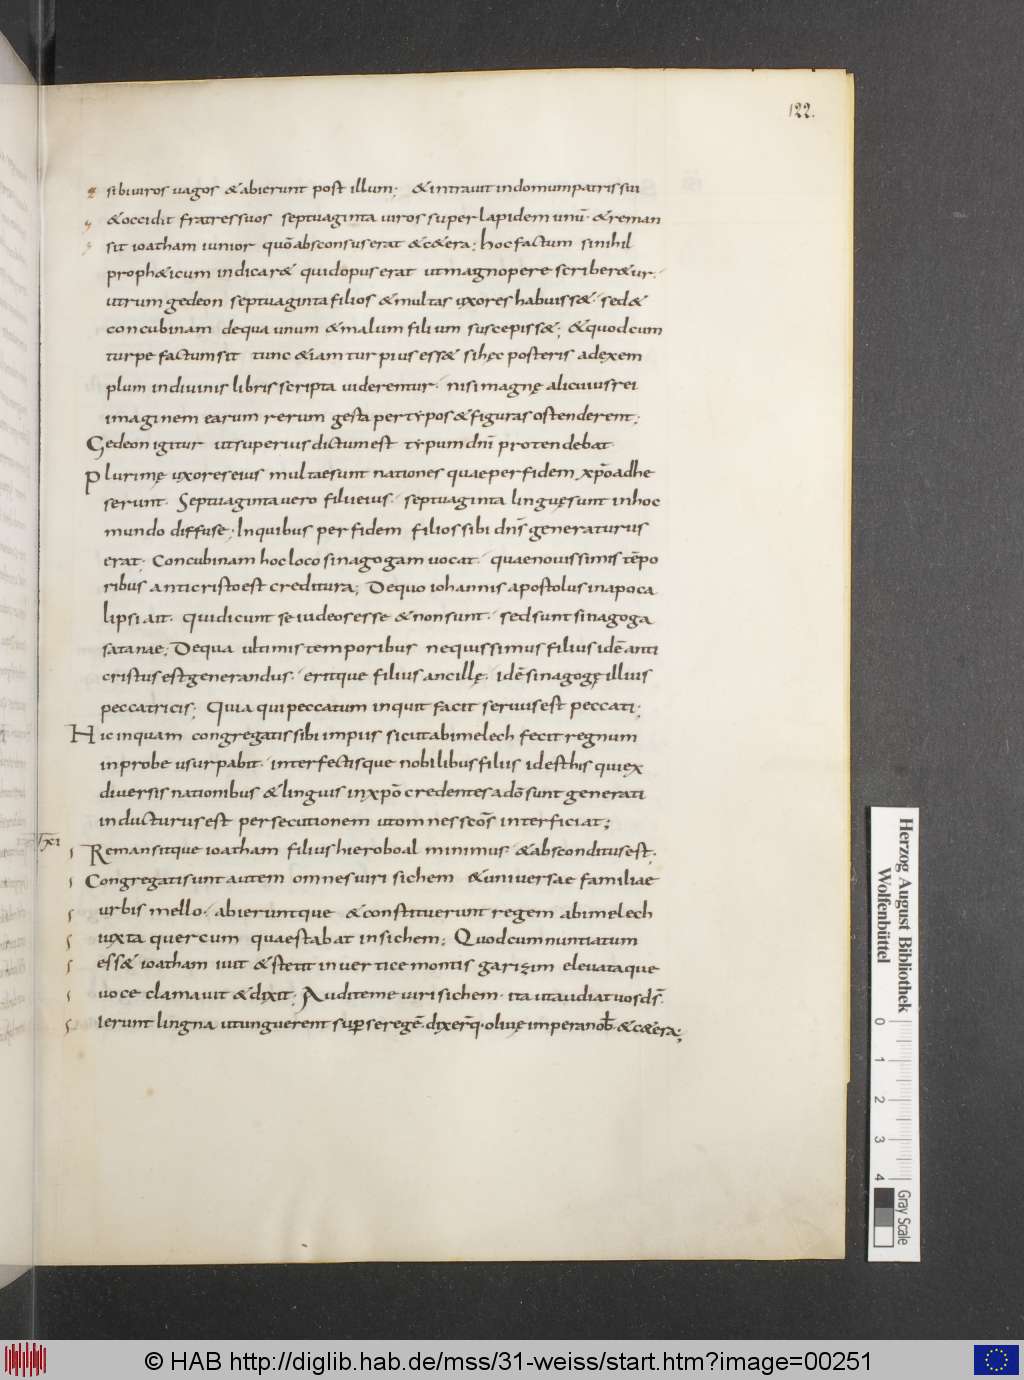 122.
sibi uiros uagos & abierunt post illum; & intrauit indomumpatrissui
& occidit fratressuos septuaginta uiros super lapidem unū· & reman
sit ioatham iunior quō absconsuserat & c&era; hoc factum sinihil
proph&icum indicar& quid opuserat utmagnopere scriber&ur;
utrum gedeon septuaginta filios & multas uxores habuiss&· sed&
concubinam dequa unum & malum filium suscepiss&; & quodcum
turpe factumsit tunc &iam turpius ess& sihęc posteris adexem
plum indiuinis libris scripta uiderentur· nisi magnę alicuius rei
imaginem earum rerum gesta per typos & figuras ostenderent;
Gedeon igitur utsuperius dictum est typum dnī protendebat·
Plurimę uxores eius multae sunt nationes quae per fidem xpō adhe
serunt· Septuaginta uero filii eius· septuaginta linguę sunt inhoc
mundo diffuse; Inquibus per fidem filios sibi dns̄ generaturus
erat; Concubinam hoc loco sinagogam uocat· quae nouissimis tēpo
ribus anticristo est creditura; Dequo iohannis apostolus inapoca
lipsi ait· qui dicunt se iudeos esse & non sunt· sed sunt sinagoga
satanae; Dequa ultimis temporibus nequissimus filius idē anti
cristus est generandus· eritque filius ancillę· idē sinagogę illius
peccatricis; Quia qui peccatum inquit facit seruus est peccati;
Hic inquam congregatis sibi impiis sicut abimelech fecit regnum
inprobe usurpabit· interfectisque nobilibus filiis id est his qui ex
diuersis nationibus & linguis inxpō credentes adō sunt generati
inducturus est persecutionem ut omnes seōs interficiat;
Remansitque ioatham filius hieroboal minimus· & absconditus est;
Congregati sunt autem omnes uiri sichem & uniuersae familiae
urbis mello· abieruntque & constituerunt regem abimelech
iuxta quercum quae stabat insichem; Quodcum nuntiatum
ess& ioatham iuit & stetit inuertice montis garizim eleuataque
uoce clamauit & dixit; Audite me uiri sichem· ita ut audiat uos ds̄·
Ierunt lingna ut unguerent sup se regē· dixerq̄· oliuę impera nob̄· & c&era;
Herzog August Bibliothek
Wolfenbüttel
0 1 2 3 4
Gray Scale
© HAB http://diglib.hab.de/mss/31-weiss/start.htm?image=00251